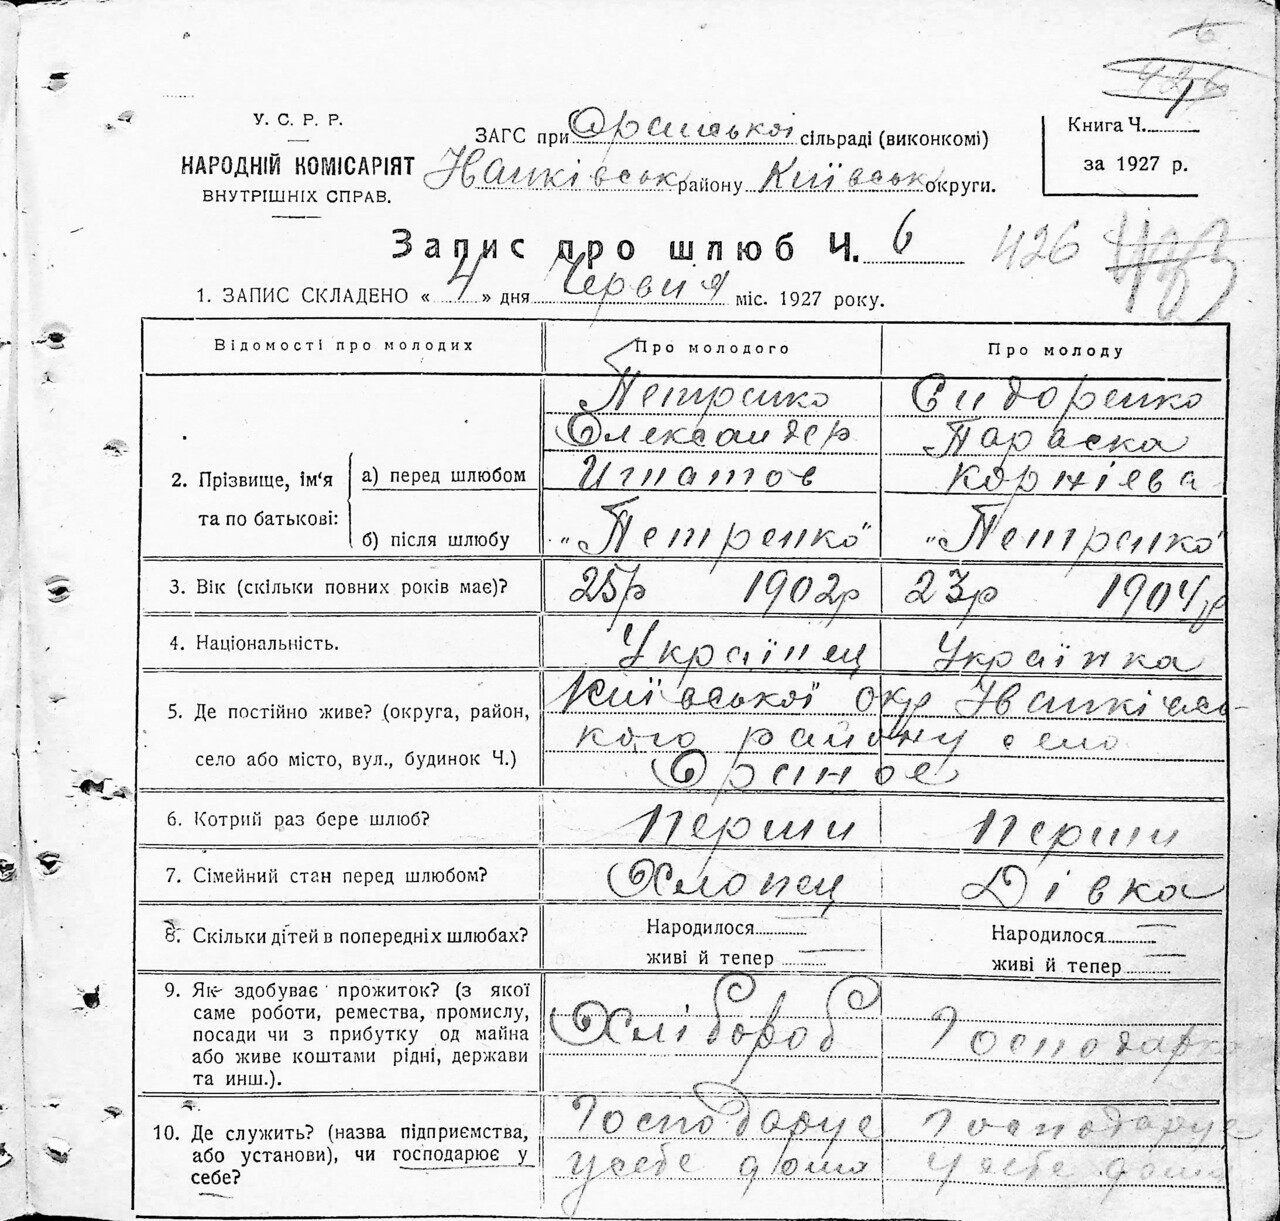 6
426
У. С. Р. Р.
НАРОДНІЙ КОМІСАРІЯТ
ВНУТРІШНІХ СПРАВ.
ЗАГС при Оранської сільраді (виконкомі)
Іванківськ району Київськ округи.
Книга Ч.
за 1927 р.
Запис про шлюб Ч. 6
426
1. ЗАПИС СКЛАДЕНО « 4 » дня Червня міс. 1927 року.
Відомості про молодих Про молодого Про молоду
2. Прізвище, ім'я та по батькові:
а) перед шлюбом
Петренко Сидоренко
Олександер Параска
Игнатов Корніева
б) після шлюбу „Петренко" „Петренко"
3. Вік (скільки повних років має)? 25р 1902р 23р 1904р
4. Національність. Українец Українка
5. Де постійно живе? (округа, район,
село або місто, вул., будинок Ч.)
Київської окр Іванківсь-
кого району село
Ораное
6. Котрий раз бере шлюб? Перши Перши
7. Сімейний стан перед шлюбом? Хлопец Дівка
8. Скільки дітей в попередніх шлюбах? Народилося — Народилося —
живі й тепер — живі й тепер —
9. Як здобуває прожиток? (з якої
саме роботи, ремества, промислу,
посади чи з прибутку од майна
або живе коштами рідні, держави
та инш.).
Хлібороб Господарка
10. Де служить? (назва підприємства,
або установи), чи господарює у
себе?
Господарує Господарує
у себе дома у себе дома